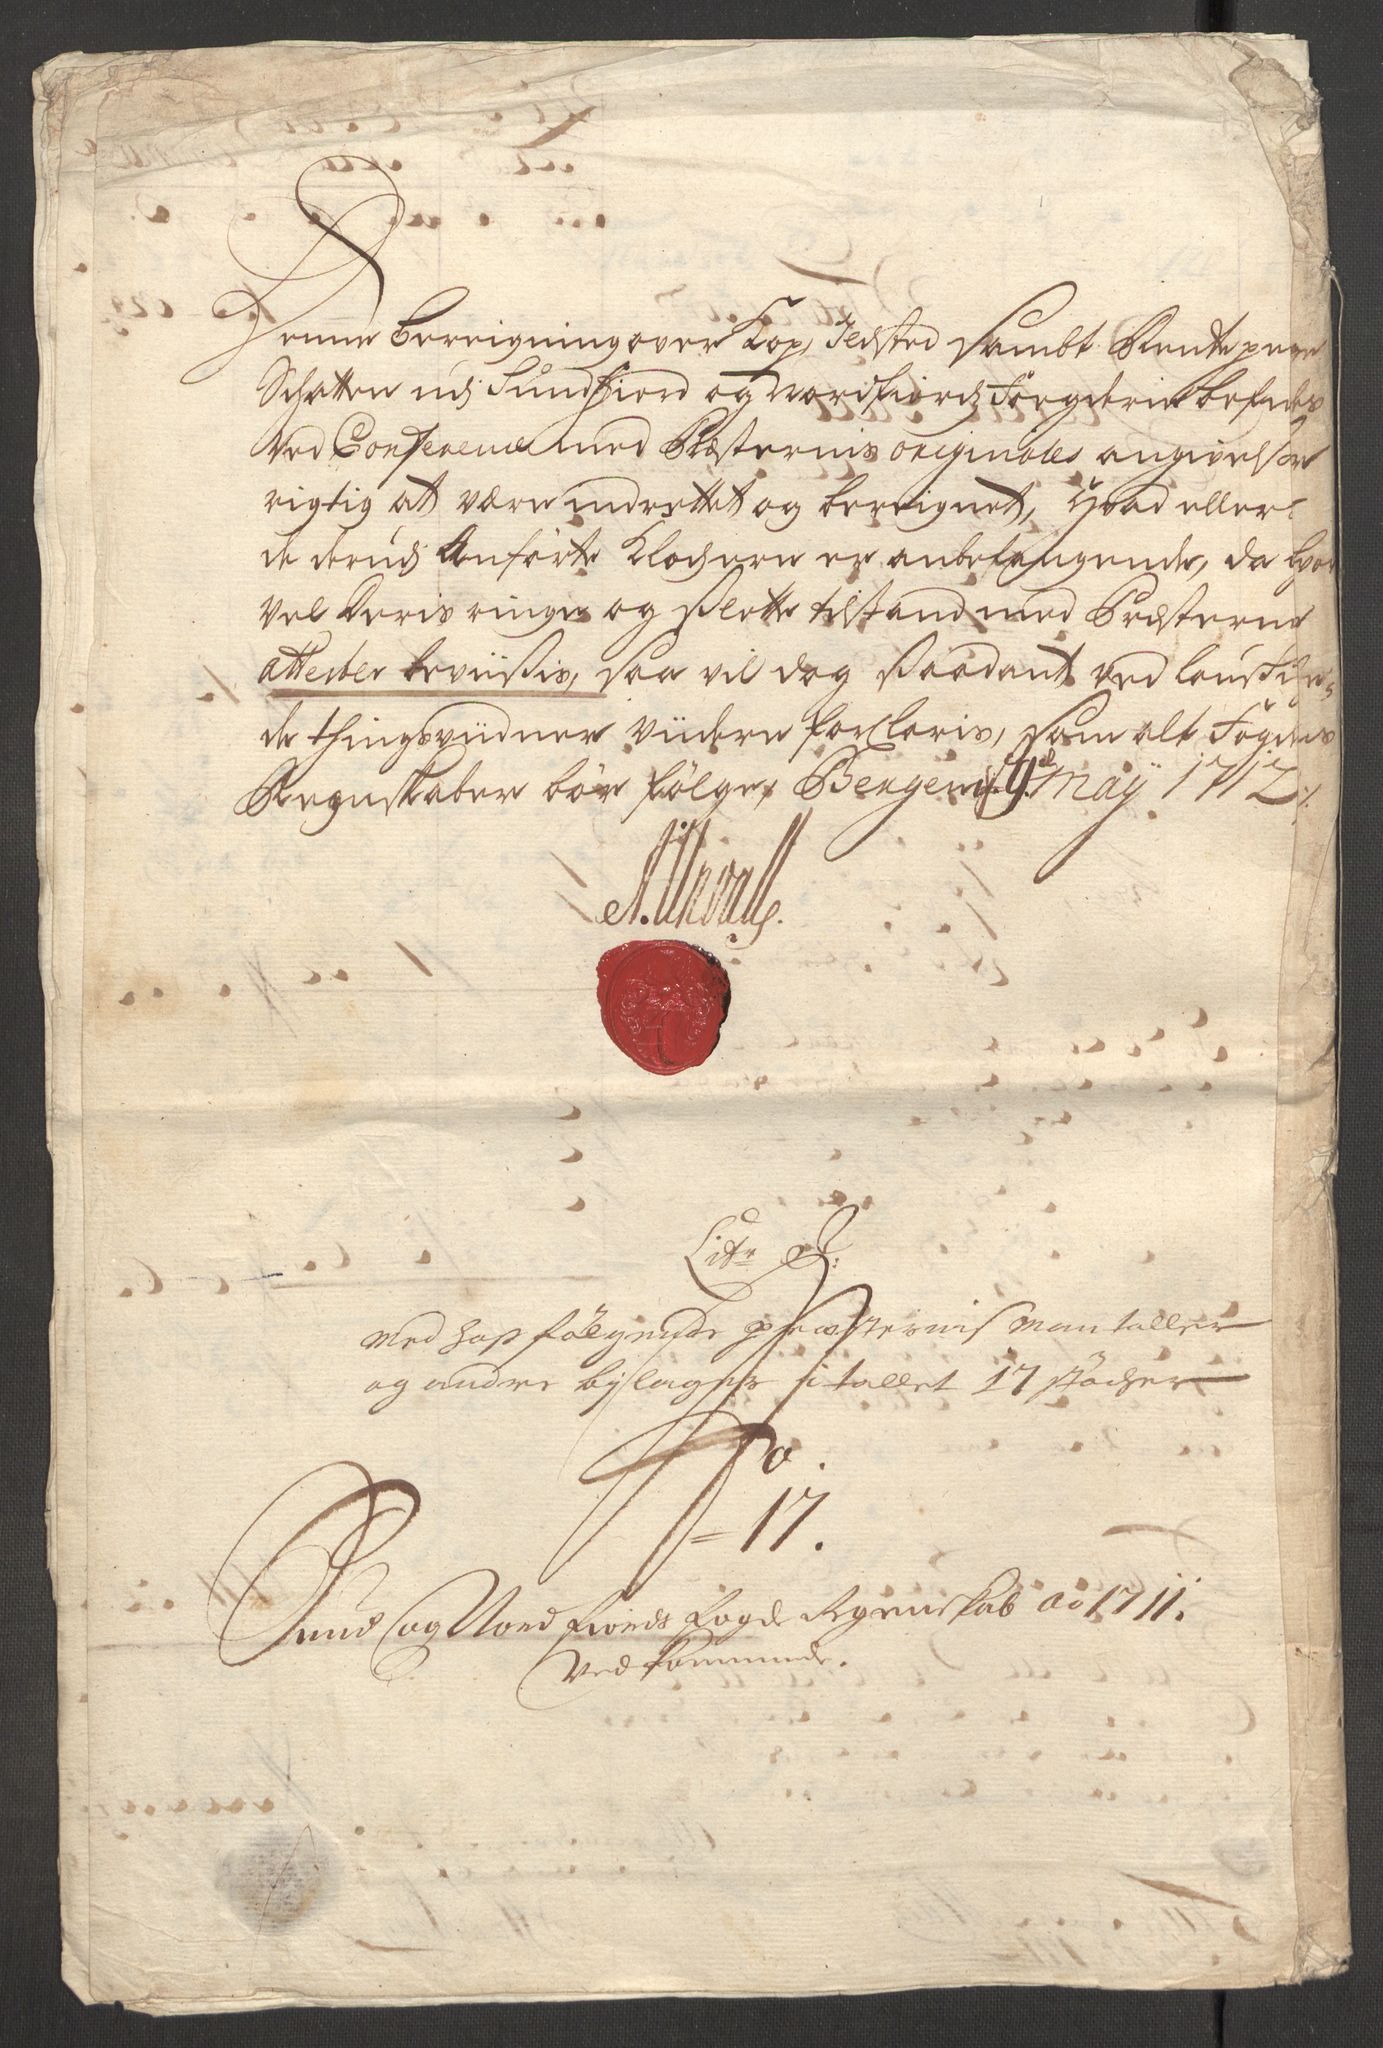 Denne bereigning over Kop, Ildsted sambt Rentepenge
Schatten udj Sundfiord og Nordfiords Fougderie befindes
ved Conference med Præsternis originales angivelser
rigtig at være indrettet og bereignet, Hvad eller
de derudj Anførte Klochere er anbelangende, da hvor
vel deris ringe og slette tilstand med Præsterne
attester beviisis, saa vil dog saadant ved lougby
de thingsvidner videre forclaris, som alt Fogdens
Regnskaber bør følge, Bergen d 9 May 1712 ./.
Litr J:
med hosfølgende præsternis mantaller
og andre bylager i tallet 17 støcher
No.
= 17.
Sund og Nordfiords fogde Regenskab Ao 1711.
vedkommende.